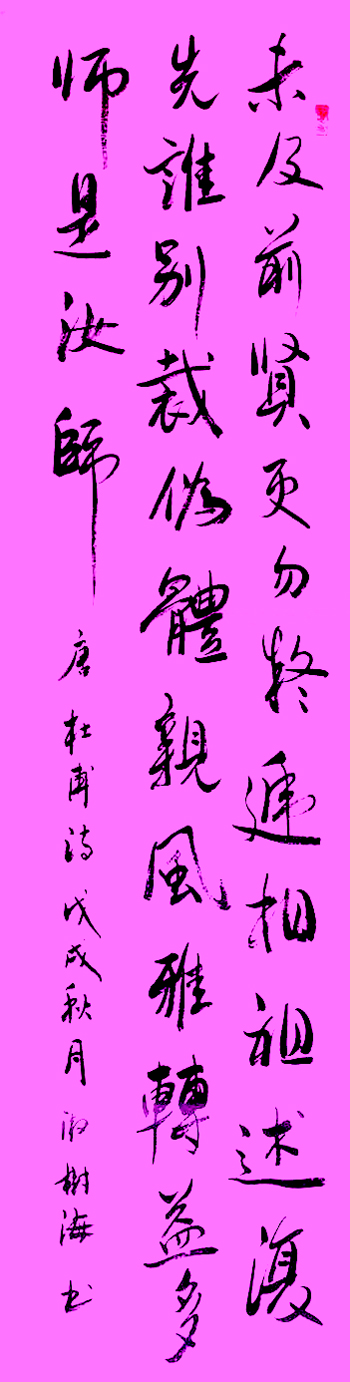 未及前賢更勿疑遞相祖述復
先誰别裁偽體親風雅轉益多
师是汝師
唐杜甫诗戊戌秋月樹海书